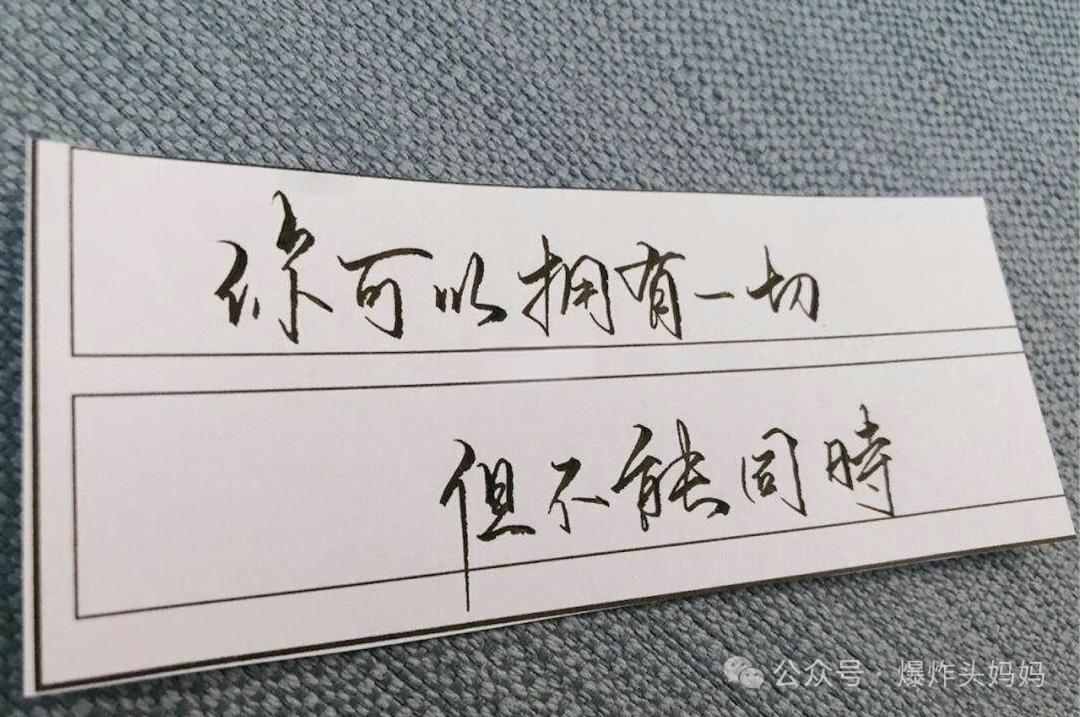 你可以拥有一切
但不能同時
公众号·爆炸头妈妈